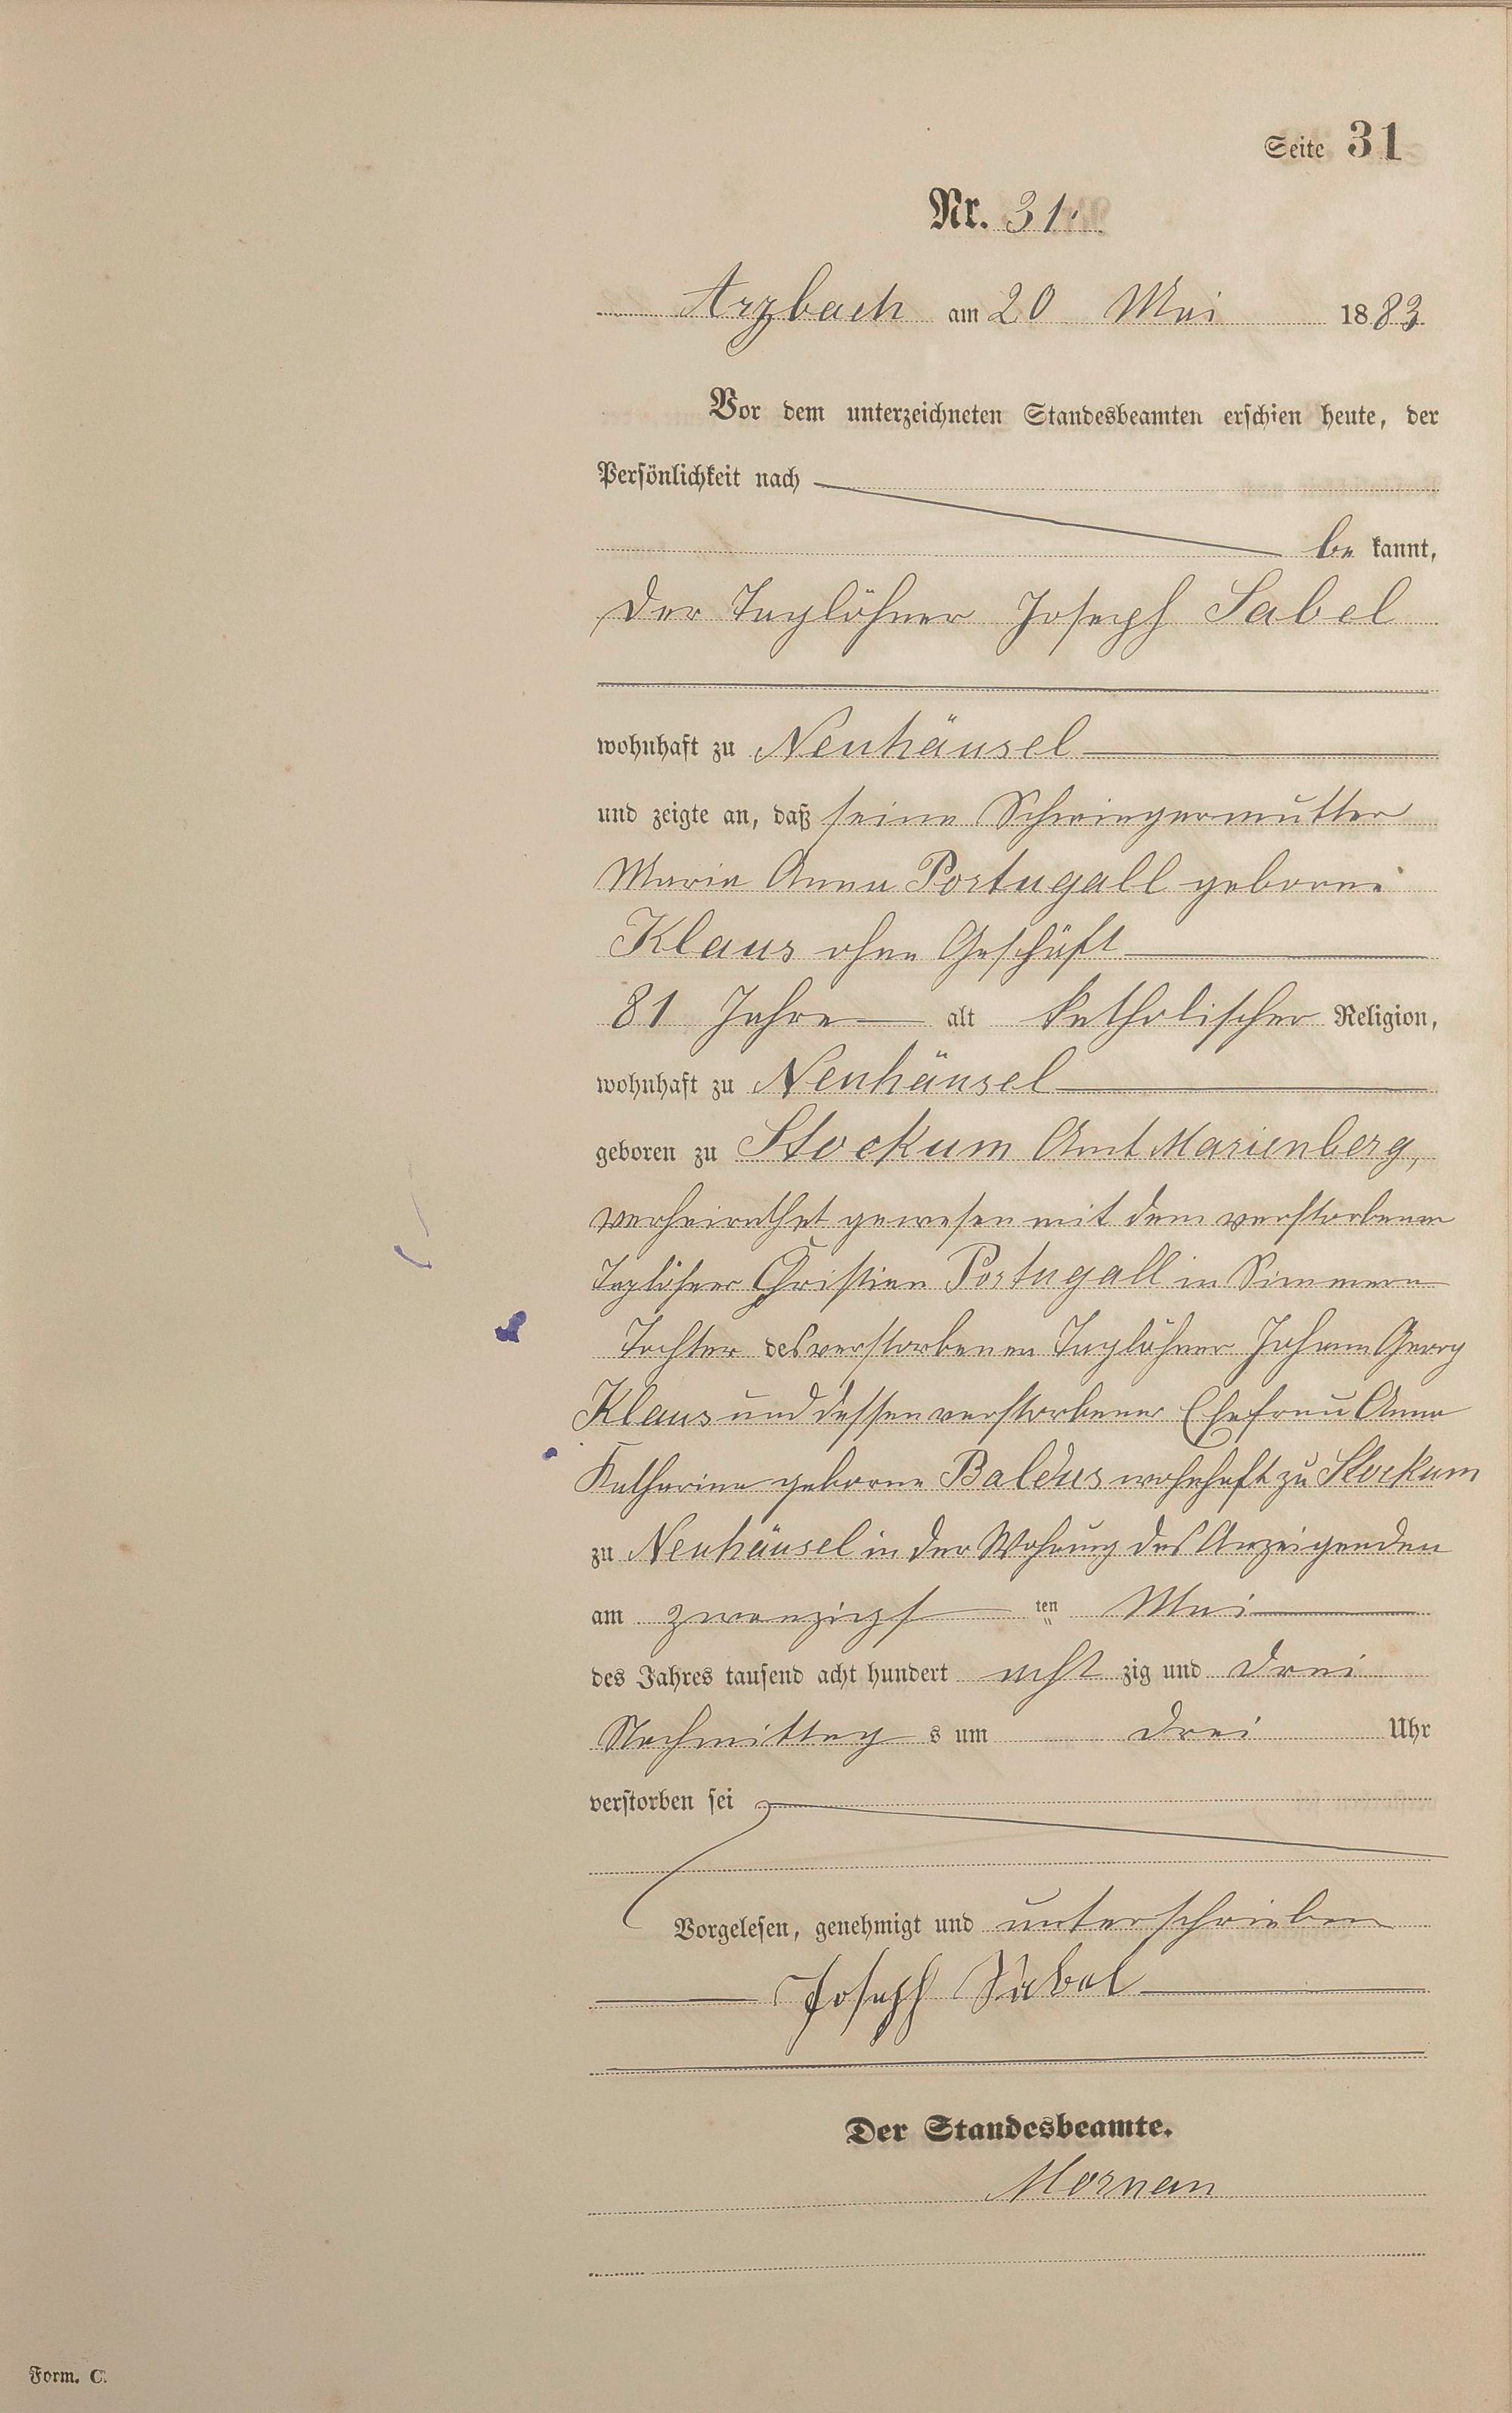 Seite 31
Nr. 31.
Arzbach am 20 Mai 1883
Vor dem unterzeichneten Standesbeamten erschien heute, der
Persönlichkeit nach
be kannt,
der Taglöhner Joseph Sabel
wohnhaft zu Neuhäusel
und zeigte an, daß seine Schwiegermutter
Maria Anna Portugall geborne
Klaus ohne Geschäft
81 Jahre alt katholischer Religion,
wohnhaft zu Neuhäusel
geboren zu Stockum Amt Marienberg,
verheirathet gewesen mit dem verstorbenen
Taglöhner Christian Portugall in Simmern
Tochter des verstorbenen Taglöhner Johann Georg
Klaus und dessen verstorbener Ehefrau Anna
Katharina geborne Baldus wohnhaft zu Stockum
zu Neuhäusel in der Wohnung des Anzeigenden
am zwanzigs ten Mai
des Jahres tausend acht hundert acht zig und drei
Nachmittag s um drei Uhr
verstorben sei
Vorgelesen, genehmigt und unterschrieben
Joseph Sabel
Der Standesbeamte.
Form. C.